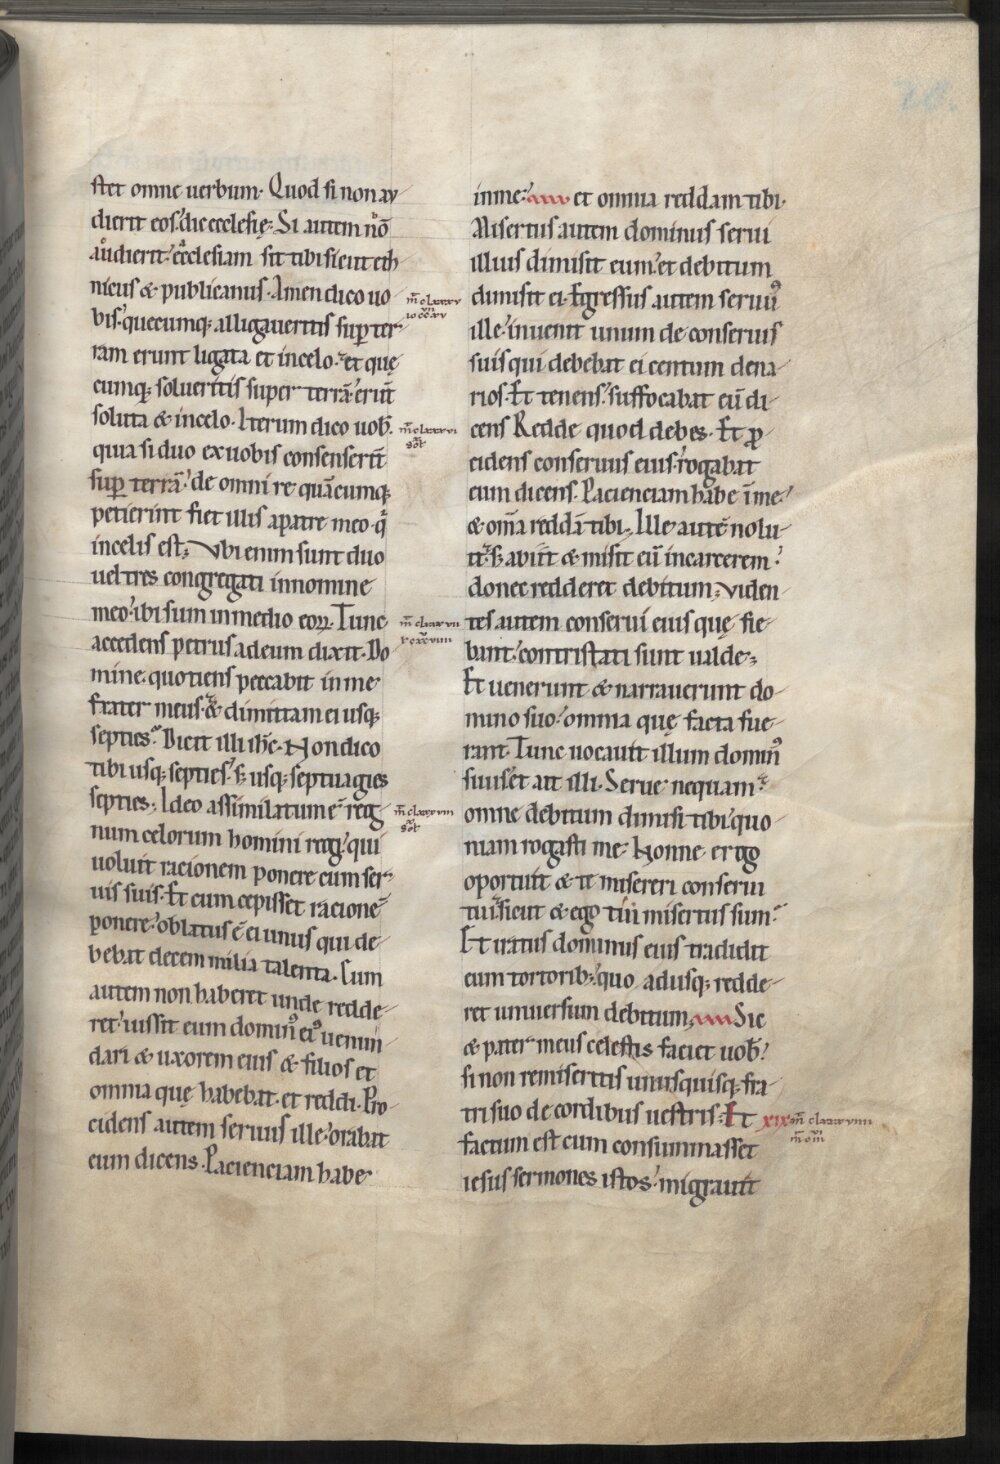 stet omne uerbum. Quod si non au
dierit eos. dic ecclesię. Si autem nō
audierit ecclesiam sit tibi sicut eth
nicus & publicanus. Amen dico uo
bis. quecumq; alligaueritis sup ter
ram erunt ligata et in celo. et quę
cumq; solueritis super terrā erūt
soluta & in celo. Iterum dico uob.
quia si duo ex uobis consenserīt
sup terrā. de omni re quācumq;
petierint fiet illis a patre meo q
in celis est; Vbi enim sunt duo
uel tres congregati in nomine
meo. ibi sum in medio eoꝝ. Tunc
accedens petrus ad eum dixit. Do
mine quotiens peccabit in me
frater meus. & dimittam ei usq;
septies. Dicit illi ihc. Non dico
tibi usq; septies. s; usq; septuagies
septies. Ideo assimilatum ē reg
num celorum homini regi. qui
uoluit racionem ponere cum ser
uis suis. Et cum cepisset racionē
ponere. oblatus ē ei unus qui de
bebat decem milia talenta. Cum
autem non haberet unde redde
ret. iussit eum domin⁹ ei⁹ uenun
dari & uxorem eius & filios et
omnia quę habebat. et reddi. Pro
cidens autem seruus ille. orabat
eum dicens. Pacienciam habe
in me. et omnia reddam tibi.
Misertus autem dominus serui
illius dimisit eum. et debitum
dimisit ei. Egressus autem seruus
ille. inuenit unum de conseruis
suis qui debebat ei centum dena
rios. Et tenens. suffocabat eū di
cens Redde quod debes. Et pro
cidens conseruus eius. rogabat
eum dicens. Pacienciam habe ī me.
& om̄a reddā tibi. Ille autē nolu
it. s; abiit & misit eū in carcerem.
donec redderet debitum; Viden
tes autem conserui eius quę fie
bant. contristati sunt ualde;
Et uenerunt & narrauerunt do
mino suo. omnia quę facta fue
rant. Tunc uocauit illum domin⁹
suus. et ait illi. Serue nequam.
omne debitum dimisi tibi quo
niam rogasti me. Nonne ergo
oportuit & te misereri conserui
tui. sicut & ego tui misertus sum.
Et iratus dominus eius tradidit
eum tortorib; quo adusq; redde
ret uniuersum debitum. Sic
& pater meus celestis faciet uob.
si non remiseritis unusquisq; fra
tri suo de cordibus uestris. Et xix
factum est cum consummasset
iesus sermones istos. migrauit